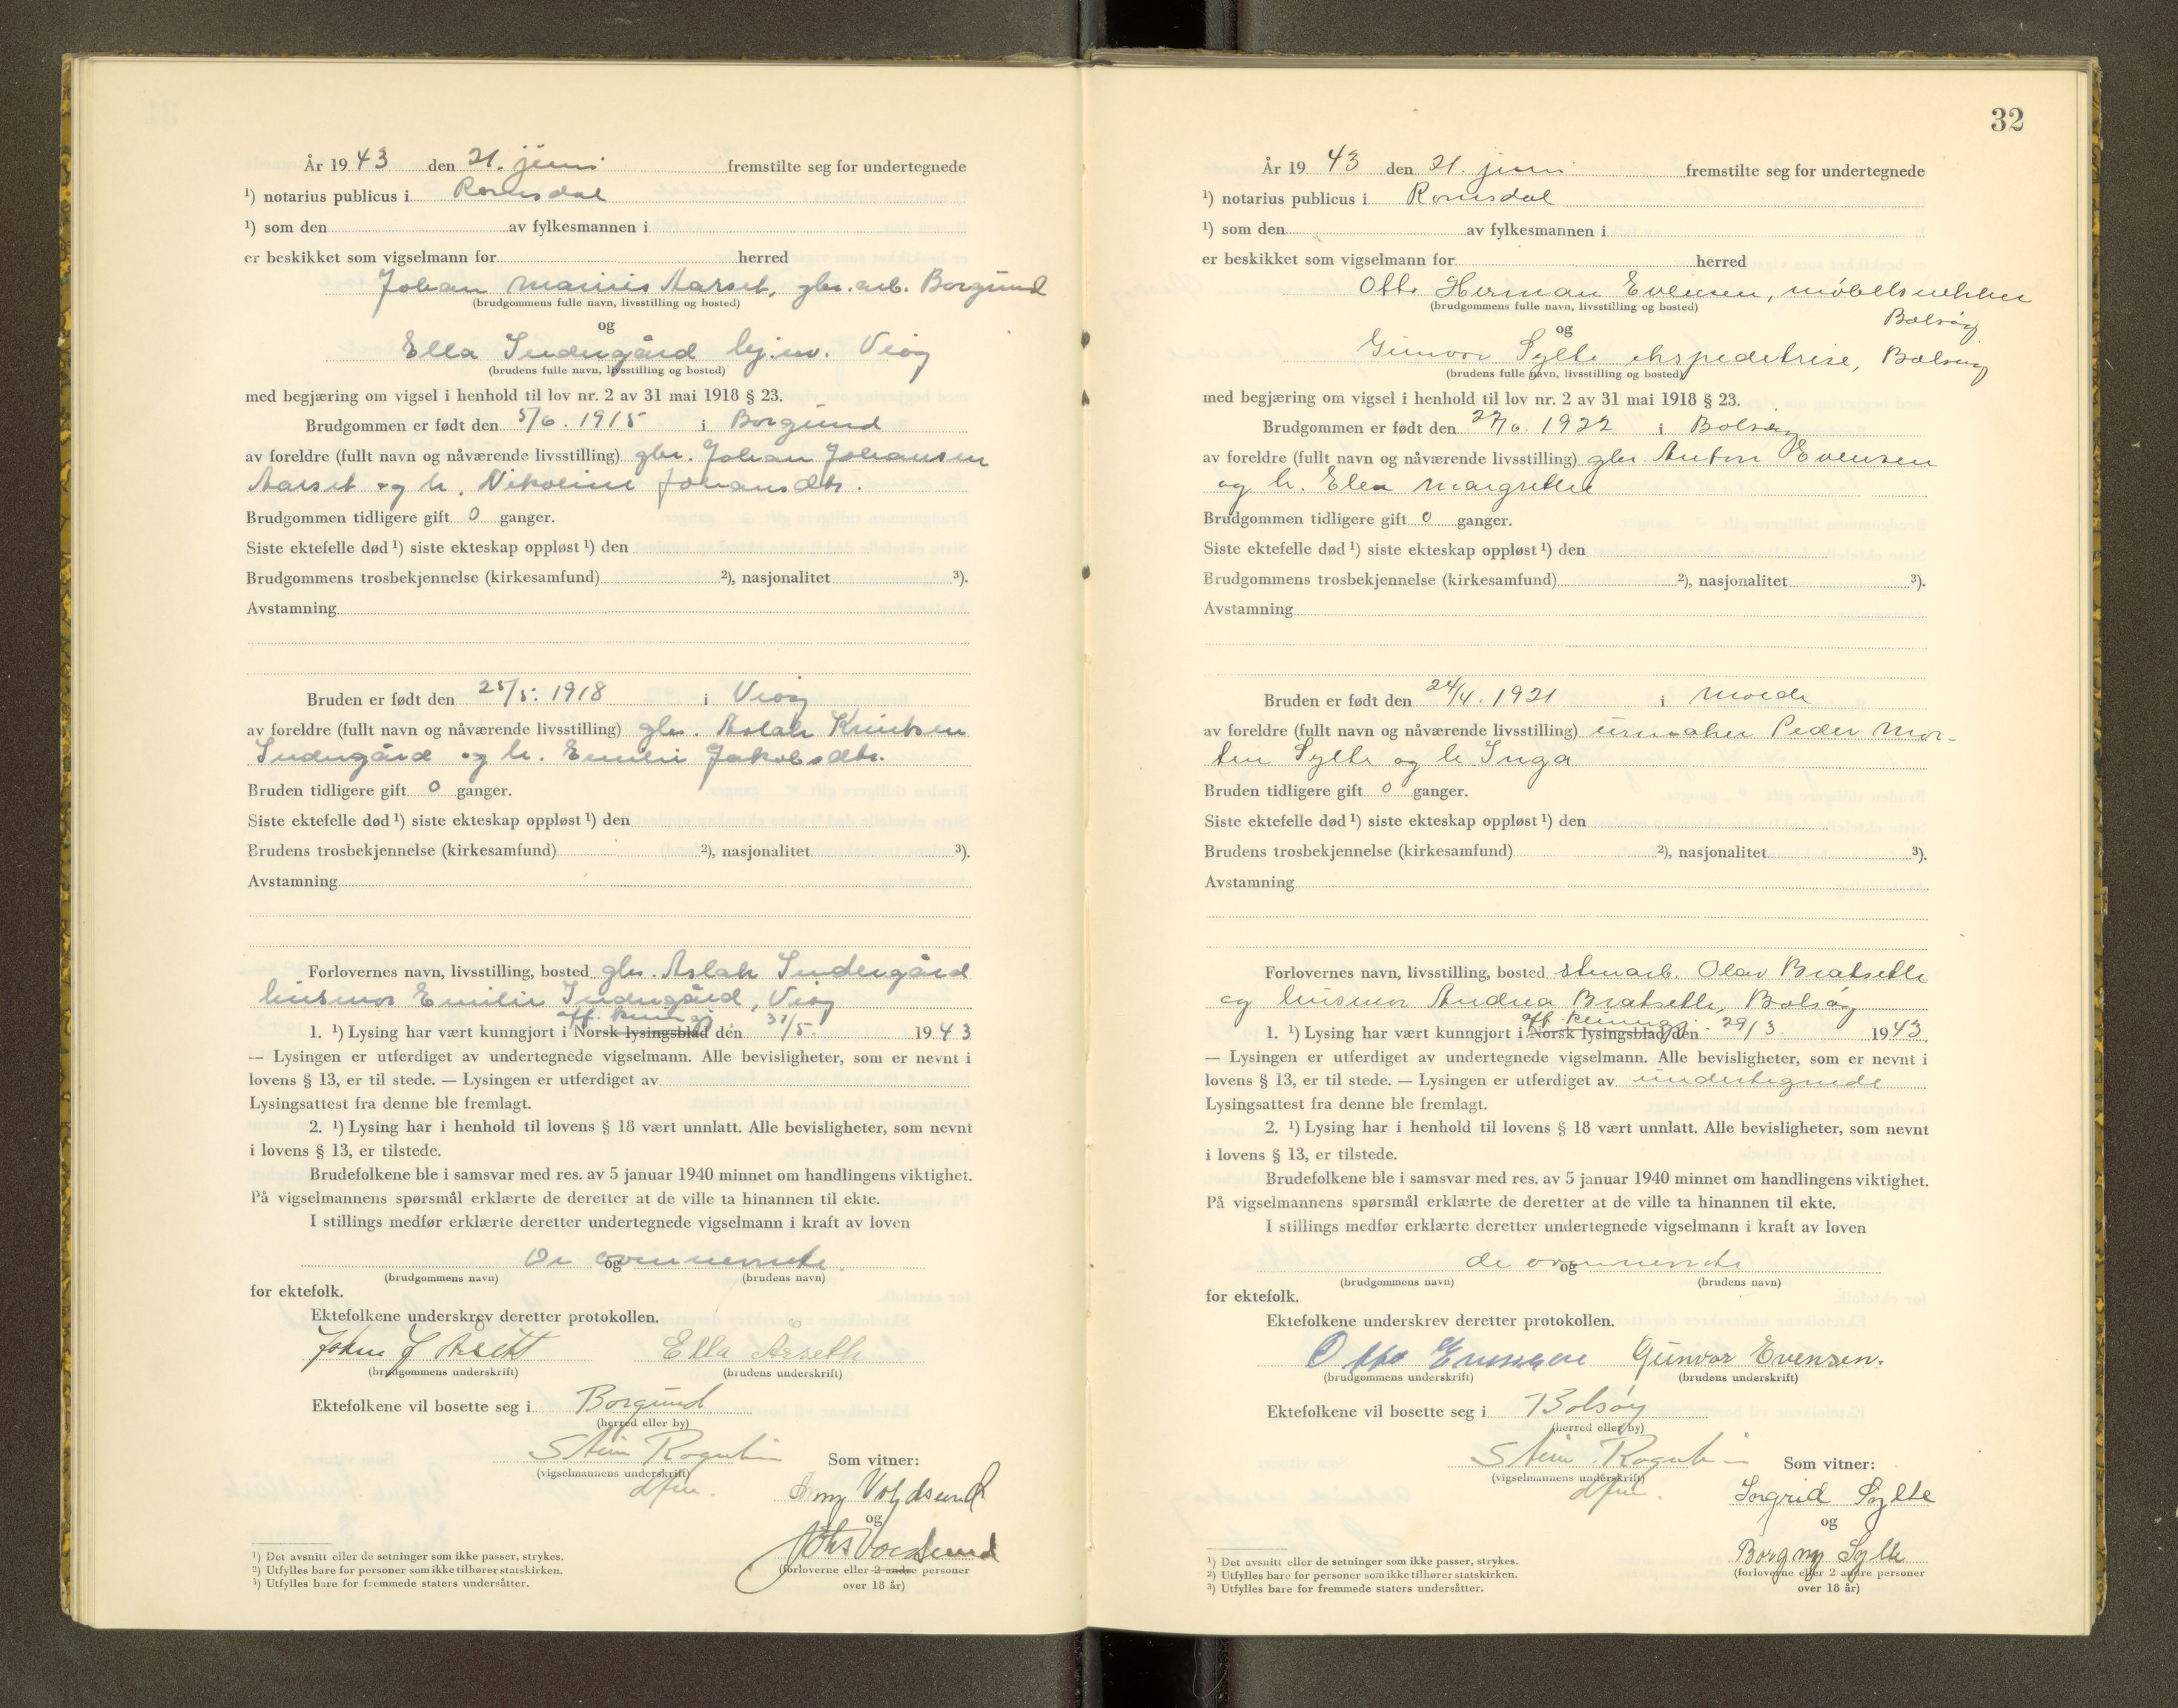 År 1943 den 21. juni fremstilte seg for undertegnede
¹) notarius publicus i Romsdal
¹) som den av fylkesmannen i
er beskikket som vigselmann for herred
Johan Marius Aarset, gbr. arb. Borgund
(brudgommens fulle navn, livsstilling og bosted)
og
Ella Indergård hj.v. Veøy
(brudens fulle navn, livsstilling og bosted)
med begjæring om vigsel i henhold til lov nr. 2 av 31 mai 1918 § 23.
Brudgommen er født den 5/6. 1915 i Borgund
av foreldre (fullt navn og nåværende livsstilling) gbr. Johan Johansen
Aarset og h. Nikoline Johansdtr.
Brudgommen tidligere gift 0 ganger.
Siste ektefelle død ¹) siste ekteskap oppløst ¹) den
Brudgommens trosbekjennelse (kirkesamfund) ²), nasjonalitet ³).
Avstamning
Bruden er født den 25/5. 1918 i Veøy
av foreldre (fullt navn og nåværende livsstilling) gbr. Aslak Knutsen
Indergård og h. Emilie Jakobsdtr.
Bruden tidligere gift 0 ganger.
Siste ektefelle død ¹) siste ekteskap oppløst ¹) den
Brudens trosbekjennelse (kirkesamfund) ²), nasjonalitet ³).
Avstamning
Forlovernes navn, livsstilling, bosted gbr. Aslak Indergård
husmor Emilie Indergård, Veøy
off. kunngj.
1. ¹) Lysing har vært kunngjort i Norsk lysingsblad den 31/5. 1943
— Lysingen er utferdiget av undertegnede vigselmann. Alle bevisligheter, som er nevnt i
lovens § 13, er til stede. — Lysingen er utferdiget av
Lysingsattest fra denne ble fremlagt.
2. ¹) Lysing har i henhold til lovens § 18 vært unnlatt. Alle bevisligheter, som nevnt
i lovens § 13, er tilstede.
Brudefolkene ble i samsvar med res. av 5 januar 1940 minnet om handlingens viktighet.
På vigselmannens spørsmål erklærte de deretter at de ville ta hinannen til ekte.
I stillings medfør erklærte deretter undertegnede vigselmann i kraft av loven
De ovennevnte
og
(brudgommens navn) (brudens navn)
for ektefolk.
Ektefolkene underskrev deretter protokollen.
Johan J Årsett Ella Årseth
(brudgommens underskrift) (brudens underskrift)
Ektefolkene vil bosette seg i Borgund
(herred eller by)
Stein Rognlien
(vigselmannens underskrift) Som vitner:
dfm.
Voldsund
og
Voldsund
(forloverne eller 2 andre personer
over 18 år)
¹) Det avsnitt eller de setninger som ikke passer, strykes.
²) Utfylles bare for personer som ikke tilhører statskirken.
³) Utfylles bare for fremmede staters undersåtter.
32
År 1943 den 21. juni fremstilte seg for undertegnede
¹) notarius publicus i Romsdal
¹) som den av fylkesmannen i
er beskikket som vigselmann for herred
Otto Herman Evensen, møbelsnekker
(brudgommens fulle navn, livsstilling og bosted)
Bolsøy
og
Gunvor Sylte ekspeditrise, Bolsøy
(brudens fulle navn, livsstilling og bosted)
med begjæring om vigsel i henhold til lov nr. 2 av 31 mai 1918 § 23.
Brudgommen er født den 27/6. 1922 i Bolsøy
av foreldre (fullt navn og nåværende livsstilling) gbr Anton Evensen
og h. Elen Margrethe
Brudgommen tidligere gift 0 ganger.
Siste ektefelle død ¹) siste ekteskap oppløst ¹) den
Brudgommens trosbekjennelse (kirkesamfund) ²), nasjonalitet ³).
Avstamning
Bruden er født den 24/4. 1921 i Molde
av foreldre (fullt navn og nåværende livsstilling) urmaker Peder Mor-
ten Sylte og h Inga
Bruden tidligere gift 0 ganger.
Siste ektefelle død ¹) siste ekteskap oppløst ¹) den
Brudens trosbekjennelse (kirkesamfund) ²), nasjonalitet ³).
Avstamning
Forlovernes navn, livsstilling, bosted stenarb. Olav Bratseth
og husmor Andrea Bratseth, Bolsøy
off. kunngj.
1. ¹) Lysing har vært kunngjort i Norsk lysingsblad den 29/3. 1943.
— Lysingen er utferdiget av undertegnede vigselmann. Alle bevisligheter, som er nevnt i
lovens § 13, er til stede. — Lysingen er utferdiget av undertegnede
Lysingsattest fra denne ble fremlagt.
2. ¹) Lysing har i henhold til lovens § 18 vært unnlatt. Alle bevisligheter, som nevnt
i lovens § 13, er tilstede.
Brudefolkene ble i samsvar med res. av 5 januar 1940 minnet om handlingens viktighet.
På vigselmannens spørsmål erklærte de deretter at de ville ta hinannen til ekte.
I stillings medfør erklærte deretter undertegnede vigselmann i kraft av loven
de ovennevnte
og
(brudgommens navn) (brudens navn)
for ektefolk.
Ektefolkene underskrev deretter protokollen.
Otto Evensen Gunvor Evensen.
(brudgommens underskrift) (brudens underskrift)
Ektefolkene vil bosette seg i Bolsøy
(herred eller by)
Stein Rognlien
(vigselmannens underskrift) Som vitner:
dfm.
Ingrid Sylte
og
Borgny Sylte
(forloverne eller 2 andre personer
over 18 år)
¹) Det avsnitt eller de setninger som ikke passer, strykes.
²) Utfylles bare for personer som ikke tilhører statskirken.
³) Utfylles bare for fremmede staters undersåtter.